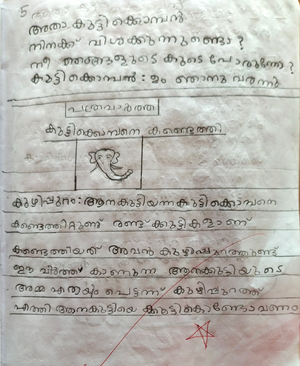 5
അതാ കുട്ടിക്കൊമ്പൻ
നിനക്ക് വിശക്കുന്നുണ്ടൊ?
നീ ഞങ്ങളുടെ കൂടെ പോരുന്നോ?
കുട്ടിക്കൊമ്പൻ : ഉം ഞാനു വരുന്നു
പത്രവാർത്ത
കുട്ടിക്കൊമ്പനെ കണ്ടെത്തി
കുഴിപ്പുറം: ആനകുട്ടിയന്ന കുട്ടിക്കൊമ്പനെ
കണ്ടെത്തിട്ടുണ്ട് രണ്ട് ക്കുട്ടികളാണ്
കണ്ടെത്തിയത് അവൻ കുഴിപ്പുറത്തുണ്ട്
ഈ വാർത്ത് കാണുന്ന ആനകുട്ടിയുടെ
അമ്മ എത്രയും പെട്ടന്ന് കുഴിപ്പുറത്ത്
എത്തി ആനകുട്ടിയെ ക്കുട്ടികൊണ്ടോവണം